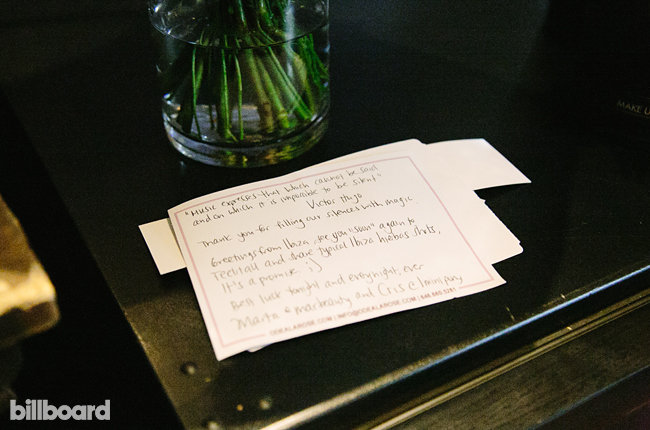 "Music expresses that which cannot be said
and on which it is impossible to be silent"
Victor Hugo
Thank you for filling our silences with magic
Greetings from Ibiza, see you "soon" again to
and share typical Ibiza hierbas shots,
It's a promise ;)
Best luck tonight and everynight, ever
Marta and Cris
ODEALAROSE.COM | INFO@ODEALAROSE.COM
MAKE U
billboard